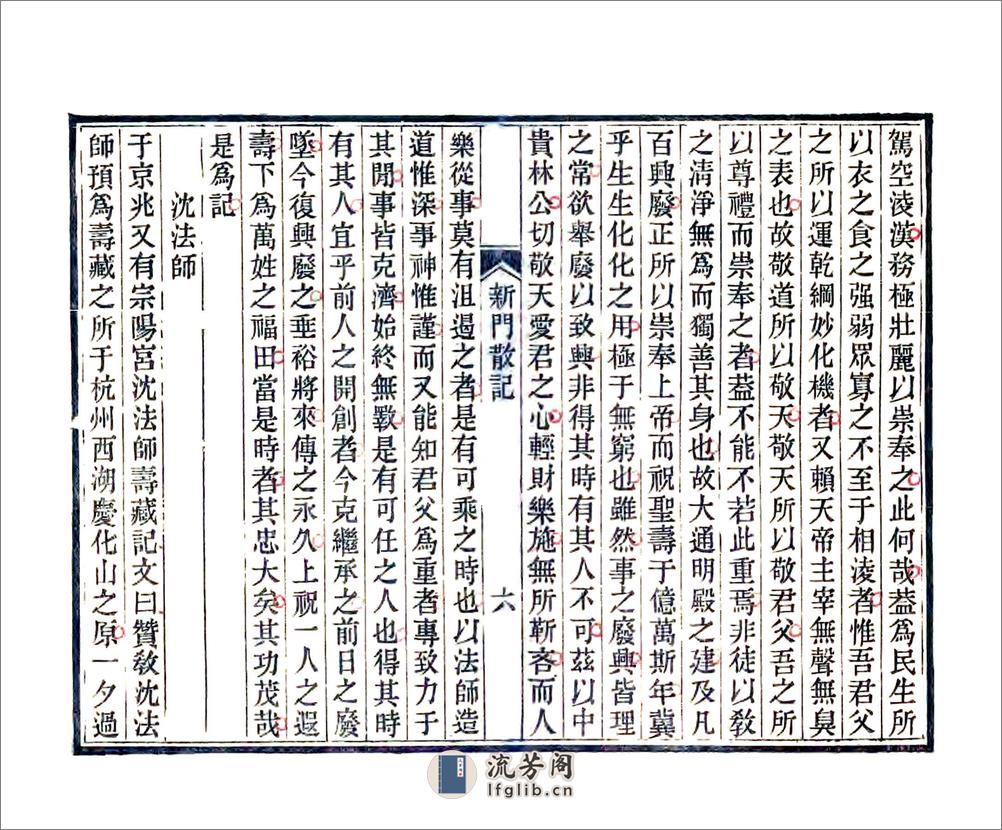 駕空淩漢務極壯麗以崇奉之此何哉葢爲民生所
以衣之食之强弱眾寡之不至于相凌者惟吾君父
之所以運乾綱妙化機者又賴天帝主宰無聲無臭
之表也故敬道所以敬天敬天所以敬君父吾之所
以尊禮而崇奉之者葢不能不若此重焉非徒以敎
之清淨無爲而獨善其身也故大通明殿之建及凡
百興廢正所以崇奉上帝而祝聖壽于億萬斯年冀
乎生生化化之用極于無窮也雖然事之廢興皆理
之常欲舉廢以致興非得其時有其人不可茲以中
貴林公切敬天愛君之心輕財樂施無所靳吝而人
新門散記
六
樂從事莫有沮遏之者是有可乘之時也以法師造
道惟深事神惟謹而又能知君父爲重者專致力于
其閒事皆克濟始終無斁是有可任之人也得其時
有其人宜乎前人之開創者今克繼承之前日之廢
墜今復興廢之垂裕將來傳之永久上祝一人之遐
壽下爲萬姓之福田當是時者其忠大矣其功茂哉
是爲記
沈法師
于京兆又有宗陽宮沈法師壽藏記文曰贊敎沈法
師預爲壽藏之所于杭州西湖慶化山之原一夕過
流芳阁
lfglib.cn